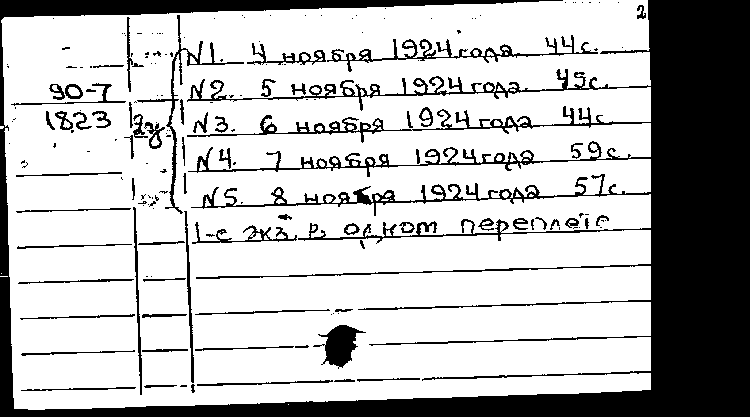 2
N1. 4 ноября 1924 года. 44с.
90-7 N2. 5 ноября 1924 года. 45с.
1823 2у N3. 6 ноября 1924 года 44с.
N4. 7 ноября 1924 года 59с.
N5. 8 ноября 1924 года 57с.
1-е экз. в одном переплете